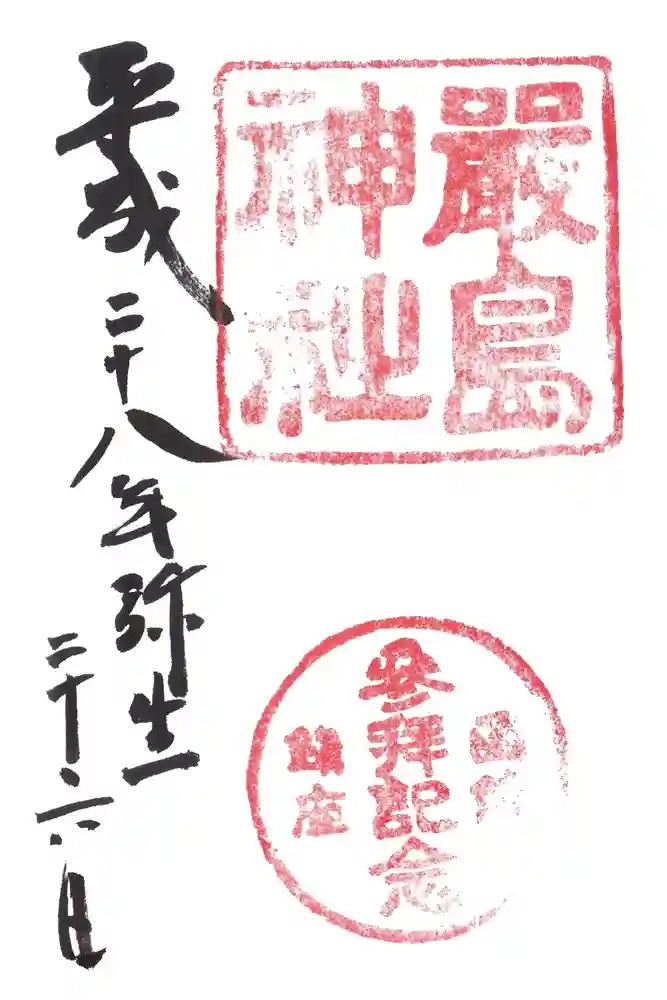 嚴島
神社
參拜記念
鎮座
平成二十八年弥生
二十六日